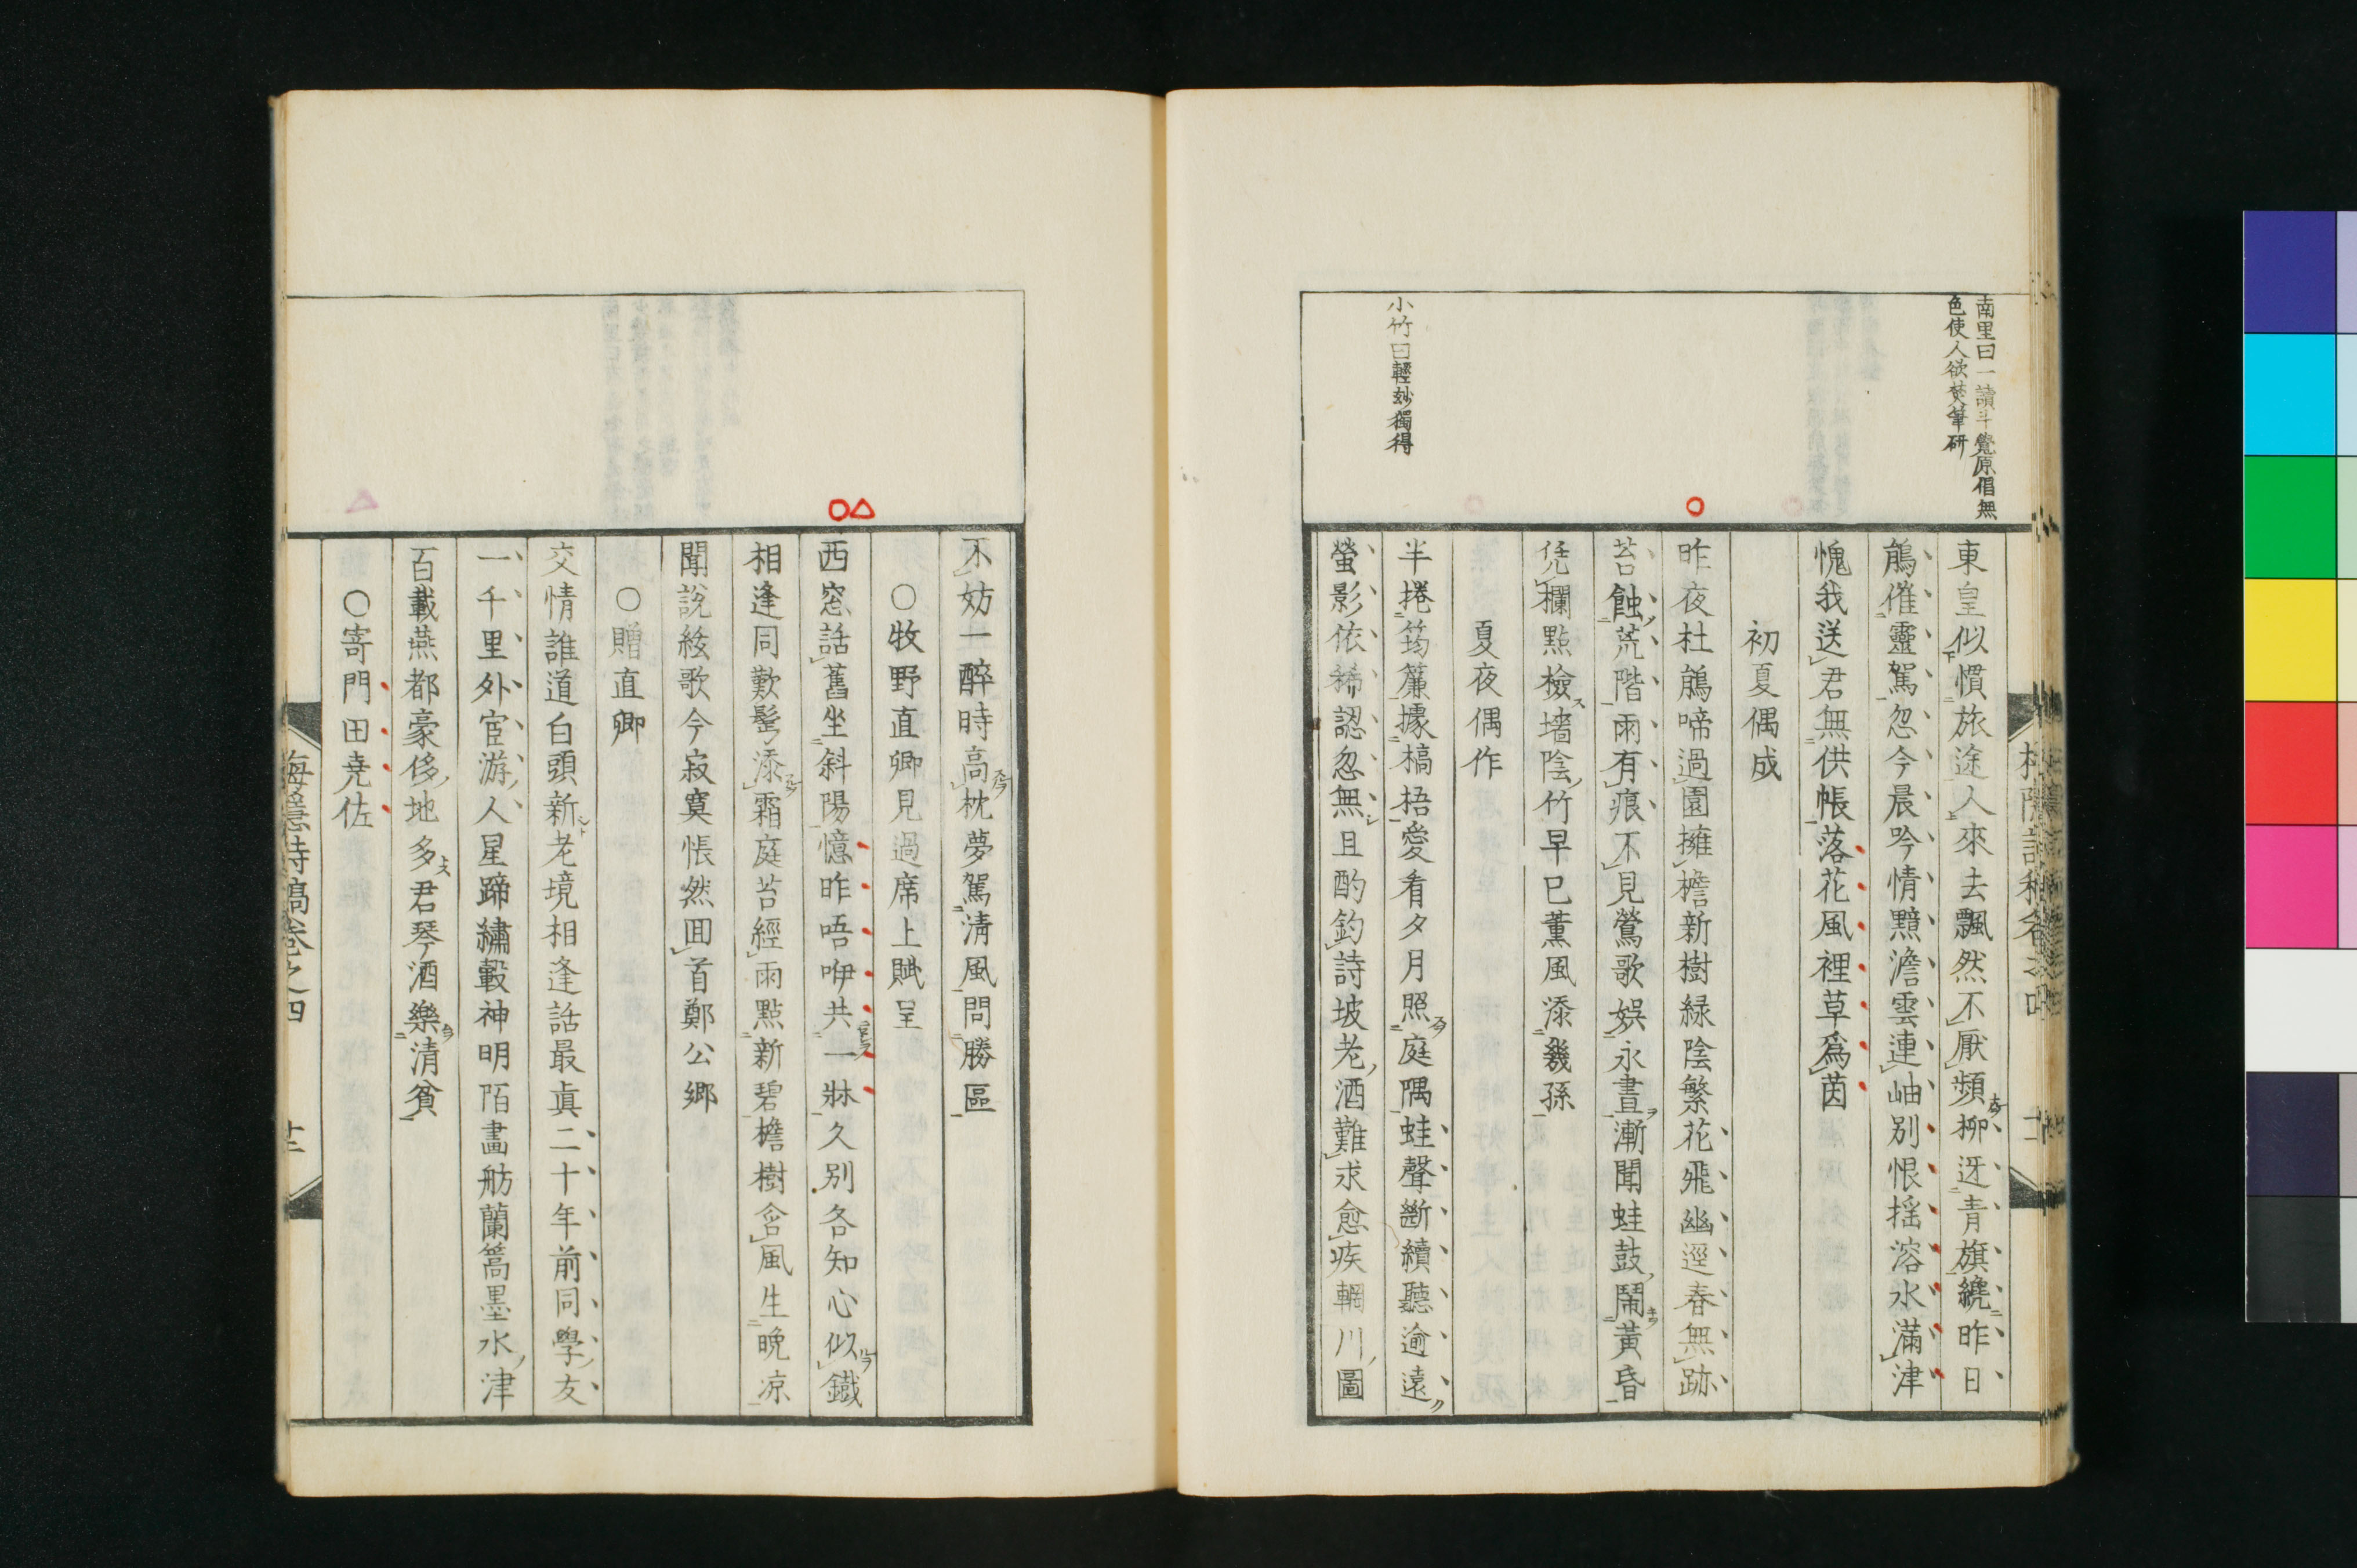 南里曰一讀斗覺原倡無
色使人欲焚筆研
東皇似慣旅途人來去飄然不厭頻柳迓青旗纔昨日
鵑催靈駕忽今晨吟情黯澹雲連岫別恨揺溶水滿津
愧我送君無供帳落花風裡草爲茵
初夏偶成
昨夜杜鵑啼過園擁檐新樹緑陰繁花飛幽逕春無跡
苔蝕荒階雨有痕不見鶯歌娯永晝漸聞蛙鼓鬧黃昏
凭欄點檢墻陰竹早已薫風添幾孫
夏夜偶作
小竹曰輕玅獨得
半捲筠簾據槁梧愛看夕月照庭隅蛙聲斷續聽逾遠
螢影依稀認忽無且酌釣詩坡老酒難求愈疾輞川圖
不妨一醉時高枕夢駕清風問勝區
○牧野直卿見過席上賦呈
西窓話舊坐斜陽憶昨唔咿共一牀久別各知心似鐵
相逢同歎髩添霜庭苔經雨點新碧檐樹含風生晚凉
聞說絃歌今寂寞悵然囬首鄭公鄉
○贈直卿
交情誰道白頭新老境相逢話最眞二十年前同學友
一千里外宦游人星蹄繡轂神明陌畫舫蘭篙墨水津
百載燕都豪侈地多君琴酒樂清貧
○寄門田堯佐
梅隱詩稿卷之四